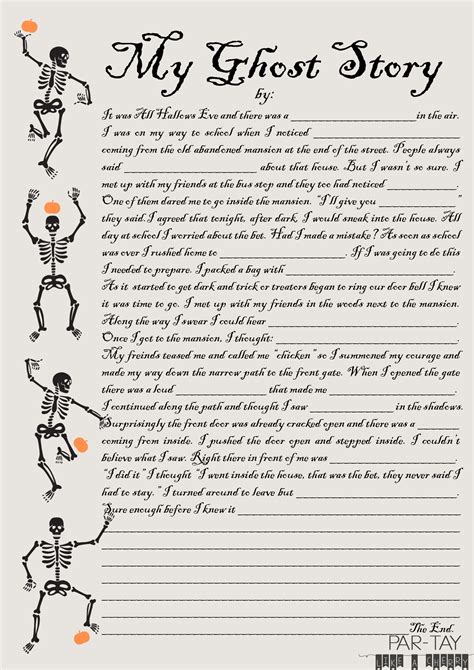 My Ghost Story
by:
It was All Hallows Eve and there was a ____________________ in the air.
I was on my way to school when I noticed ____________________
coming from the old abandoned mansion at the end of the street. People always
said ____________________ about that house. But I wasn't so sure. I
met up with my friends at the bus stop and they too had noticed ____________.
One of them dared me to go inside the mansion. "I'll give you ____________"
they said. I agreed that tonight, after dark, I would sneak into the house. All
day at school I worried about the bet. Had I made a mistake? As soon as school
was over I rushed home to ____________________. If I was going to do this
I needed to prepare. I packed a bag with ____________________.
As it started to get dark and trick or treators began to ring our door bell I knew
it was time to go. I met up with my friends in the woods next to the mansion.
Along the way I swear I could hear ____________________.
Once I got to the mansion, I thought: ____________________.
My freinds teased me and called me "chicken" so I summoned my courage and
made my way down the narrow path to the front gate. When I opened the gate
there was a loud ____________________ that made me ____________________
I continued along the path and thought I saw ____________________ in the shadows.
Surprisingly the front door was already cracked open and there was a ________
coming from inside. I pushed the door open and stepped inside. I couldn't
believe what I saw. Right there in front of me was ____________________.
"I did it" I thought "I went inside the house, that was the bet, they never said I
had to stay." I turned around to leave but ____________________.
"Sure enough before I knew it ____________________
The End.
PAR-TAY
LIKE A CHERRY